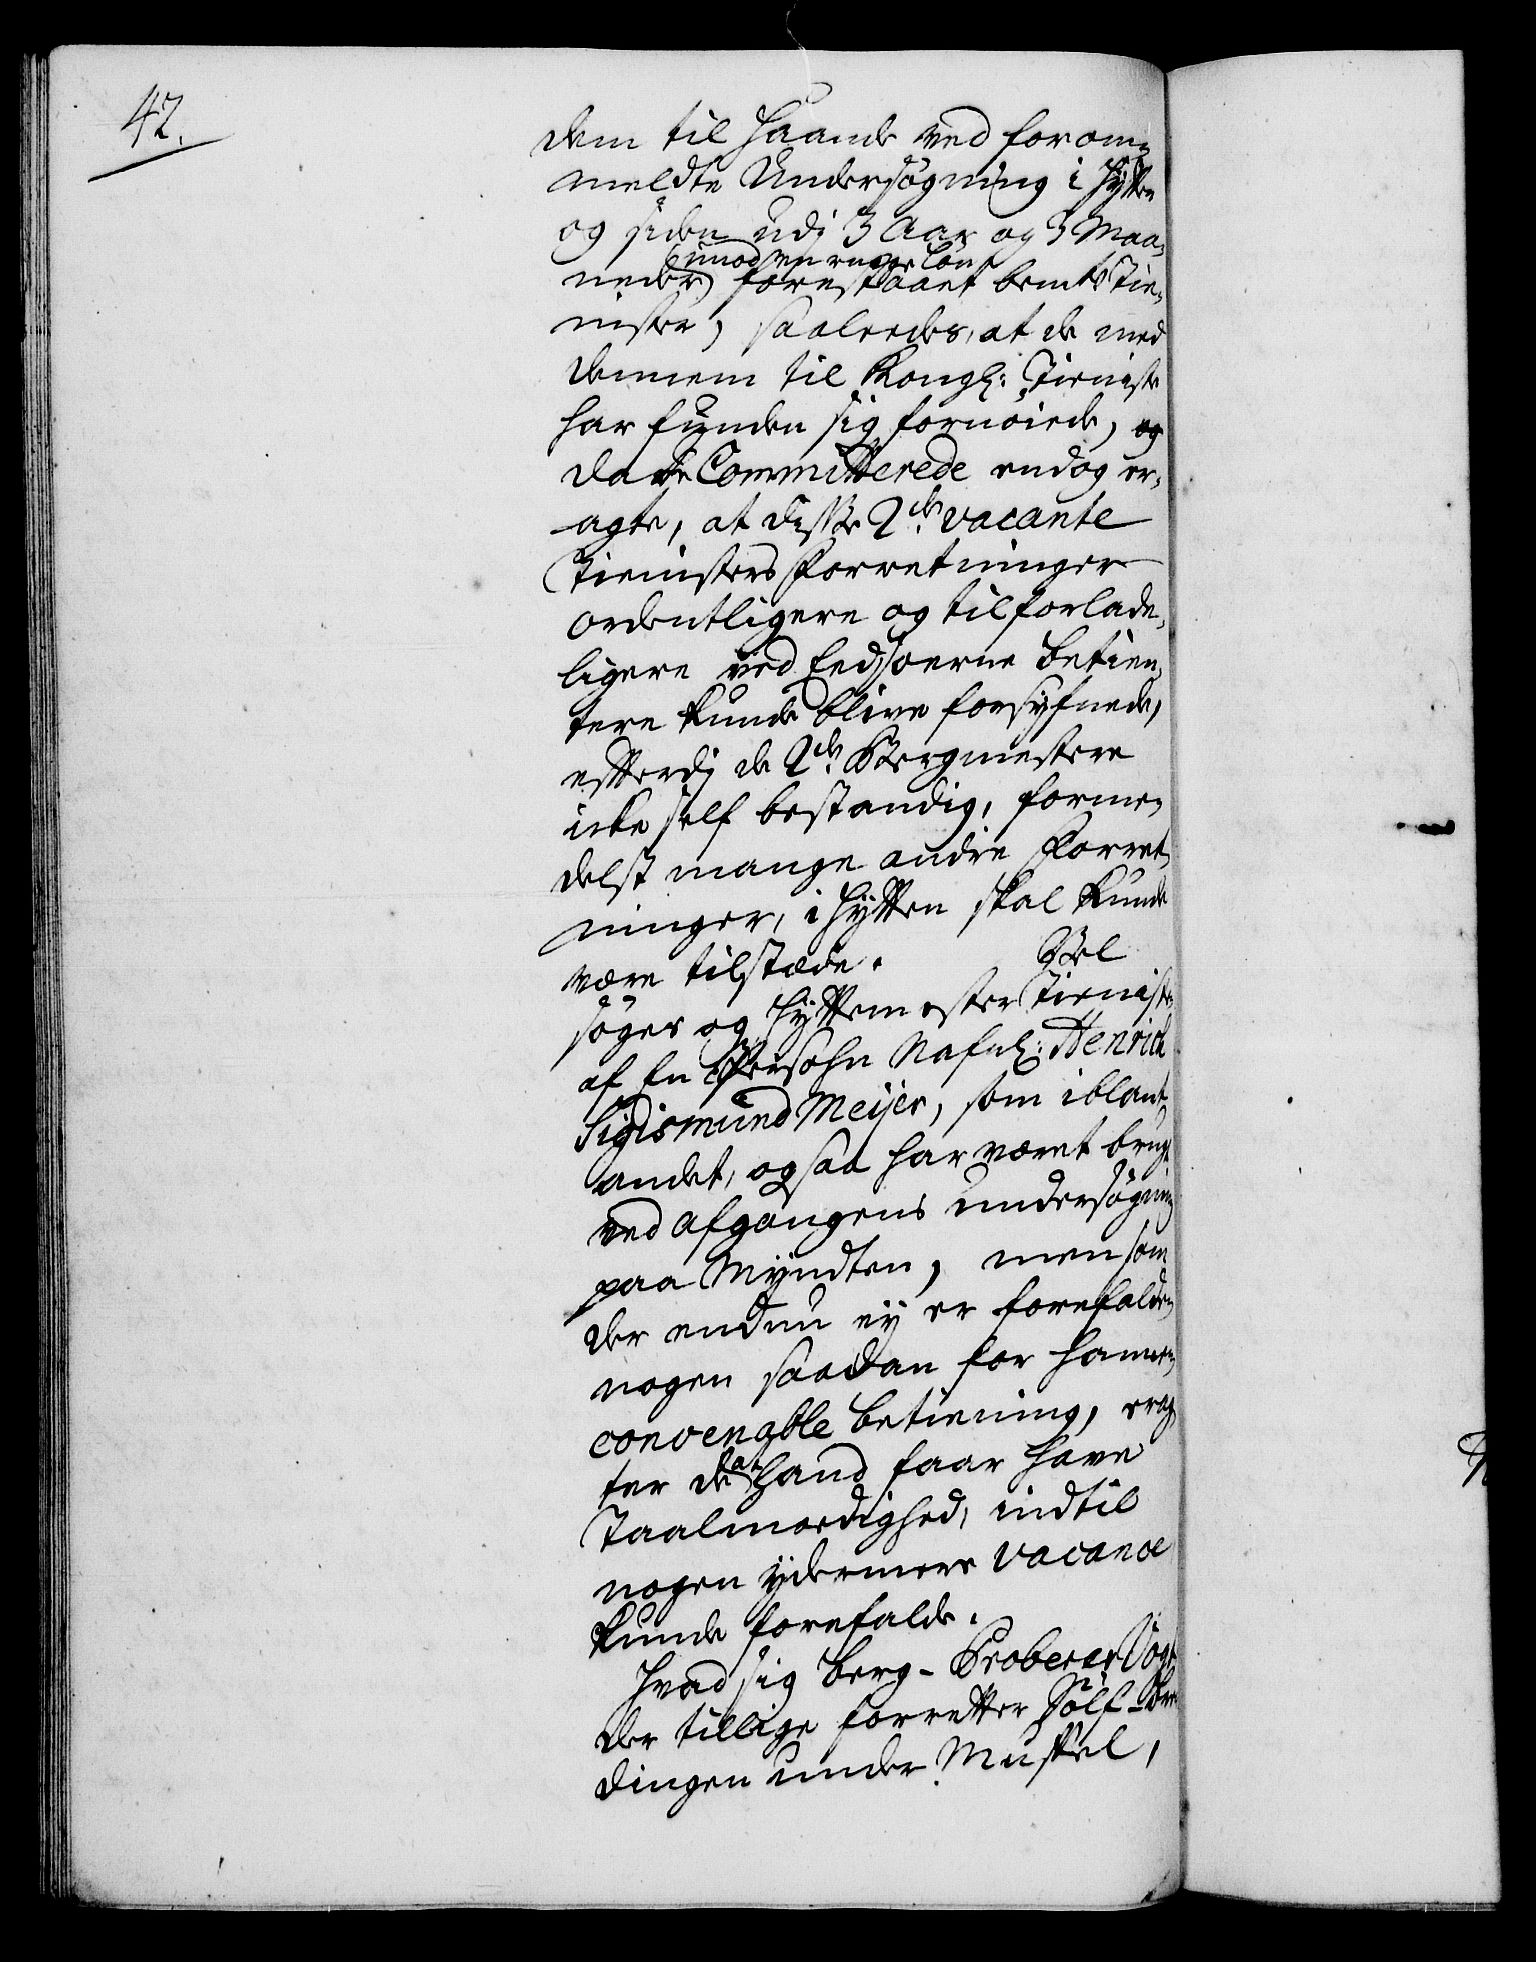 42.
dem til Haande ved forom-
meldte Undersøgning i Hytten
og siden udj 3 Aar og 3 Maa-
imod en ringe Løn
neder forestaaet bemte Tie-
nister, saaledes, at de med
dennem til Kongl: Tieniste
har funden sig fornøiede, og
da de Committerede endog er-
agte, at disse 2de vacante
Tienisters Forretninger
ordentligere og tilforlade-
ligere ved Eedsoerne betien-
tere kunde blive forsyfnede,
efterdj de 2de Bergmestere
icke self bestandig, forme-
delst mange andre Forret-
ninger, i Hytten skal kunde
være tilstæde. Vel
søges og Hyttemester Tieniste
af En Persohn Nafnl: Henrich
Sigismund Meijer, som iblant
andet, ogsaa har været brugt
ved afgangens undersøgning
paa Myndten, men som
der endnu ey er forefalden
nogen saadan for hannem
convenable betiening, erag-
ter de at Hand faar have
Taalmodighed, indtil
nogen ydermere vacance
kunde forefalde.
Hvad sig Berg-Proberer Vogt
der tillige forretter Sølf-Bræ-
dingen under Muffel,